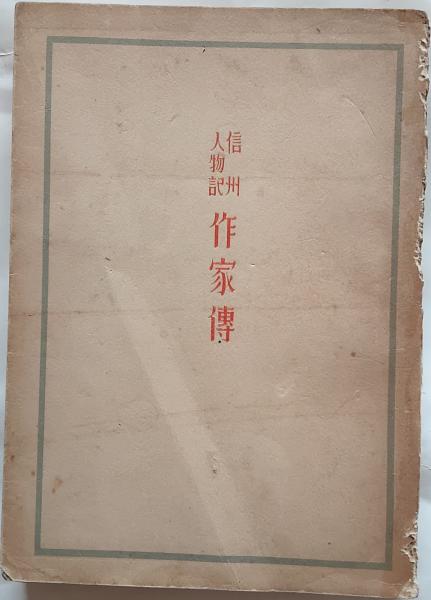 信州
人物記
作家傳